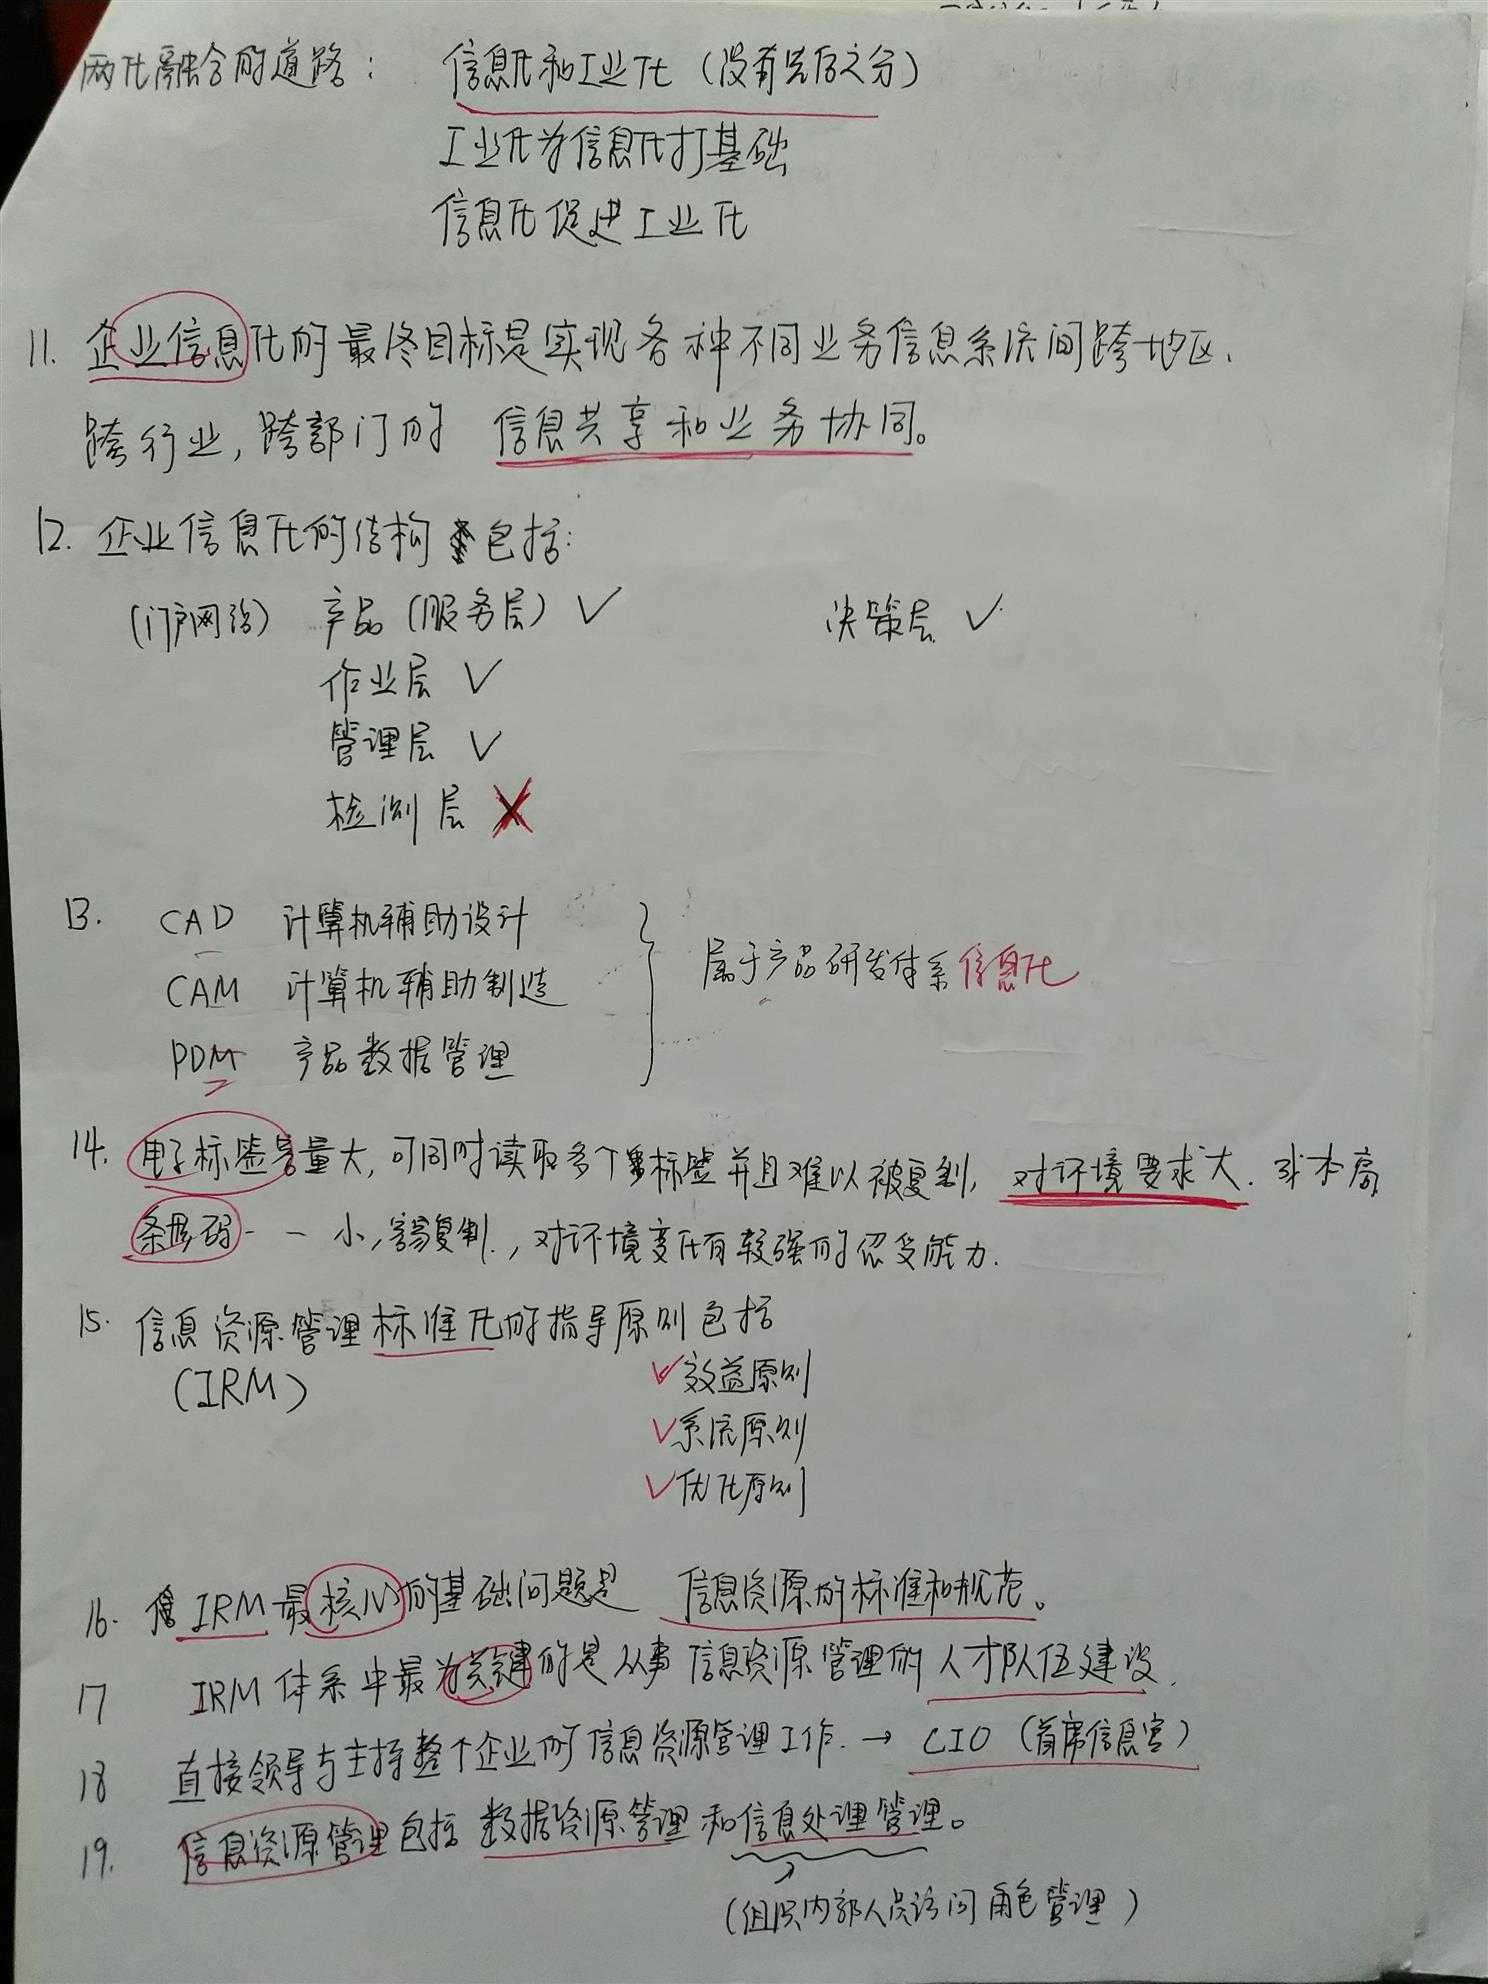 两化融合的道路： 信息化和工业化（没有先后之分）
工业化为信息化打基础
信息化促进工业化
11. 企业信息化的最终目标是实现各种不同业务信息系统间跨地区、
跨行业，跨部门的 信息共享和业务协同。
12. 企业信息化的结构包括：
（门户网站） 产品（服务层）✓ 决策层 ✓
作业层 ✓
管理层 ✓
检测层 ✗
13. CAD 计算机辅助设计
CAM 计算机辅助制造 属于产品研发体系信息化
PDM 产品数据管理
14. 电子标签容量大，可同时读取多个标签并且难以被复制，对环境要求大. 成本高
条形码 - - 小，容易复制.，对环境变化有较强的忍受能力.
15. 信息资源管理标准化的指导原则包括
（IRM） ✓效益原则
✓系统原则
✓优化原则
16. IRM最核心的基础问题是 信息资源的标准和规范。
17 IRM体系中最为关键的是从事信息资源管理的人才队伍建设.
18 直接领导与主持整个企业的信息资源管理工作. → CIO（首席信息官）
19. 信息资源管理包括 数据资源管理和信息处理管理。
（组织内部人员访问角色管理）